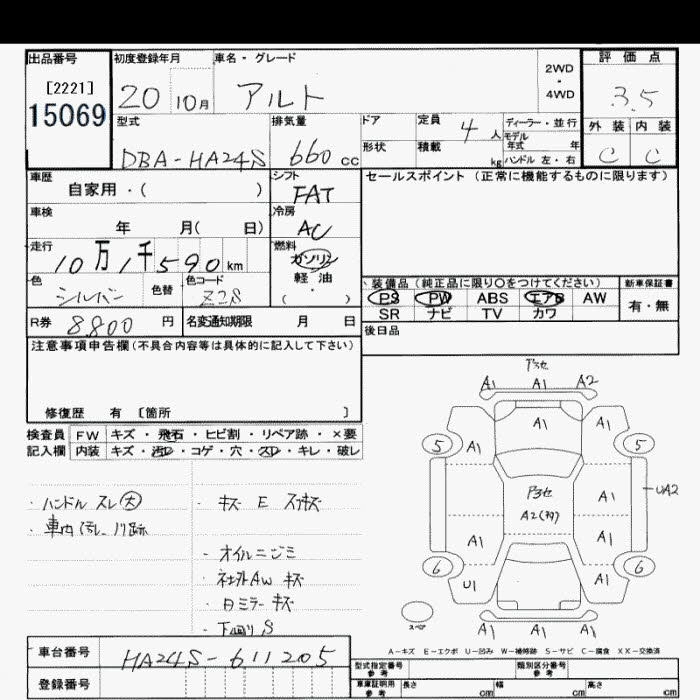 出品番号
[2221]
15069
初度登録年月
20 10月
車名・グレード
アルト
2WD
・
4WD
評価点
3.5
型式
DBA-HA24S
排気量
660 cc
ドア
形状
定員 4 人
積載 kg
ディーラー・並行
モデル年式 年
ハンドル 左・右
外装 内装
C C
車歴
自家用・( )
シフト
FAT
セールスポイント (正常に機能するものに限ります)
車検
年 月( 日)
冷房
AC
走行
10万1千590 km
燃料
ガソリン
軽油
( ・ )
色
シルバー
色替
色コード
Z2S
装備品 (純正品に限り○をつけてください)
PS PW ABS エアB AW
SR ナビ TV カワ
新車保証書
有・無
R券 8,800 円
名変通知期限 月 日
後日品
注意事項申告欄 (不具合内容等は具体的に記入して下さい)
修復歴 有 〔箇所 〕
検査員 FW キズ・飛石・ヒビ割・リペア跡・×要
記入欄 内装 キズ・汚レ・コゲ・穴・スレ・キレ・破レ
・ハンドル スレ(大)
・車内 汚レ
・キズ E
・オイルニジミ
・社外AW キズ
・日ミラー キズ
・下廻り S
P3セ
A1 A1 A2
5 A1 A1 A1 5
P3セ
A1
UA2
A1 A1
6 U1 A1 6
スペア
A1 A1 A1
A-キズ E-エクボ U-凹み W-補修跡 S-サビ C-腐食 XX-交換済
車台番号
HA24S-611205
登録番号
型式指定番号 参考
類別区分番号 参考
車庫証明用 参考 長さ cm 幅 cm 高さ cm